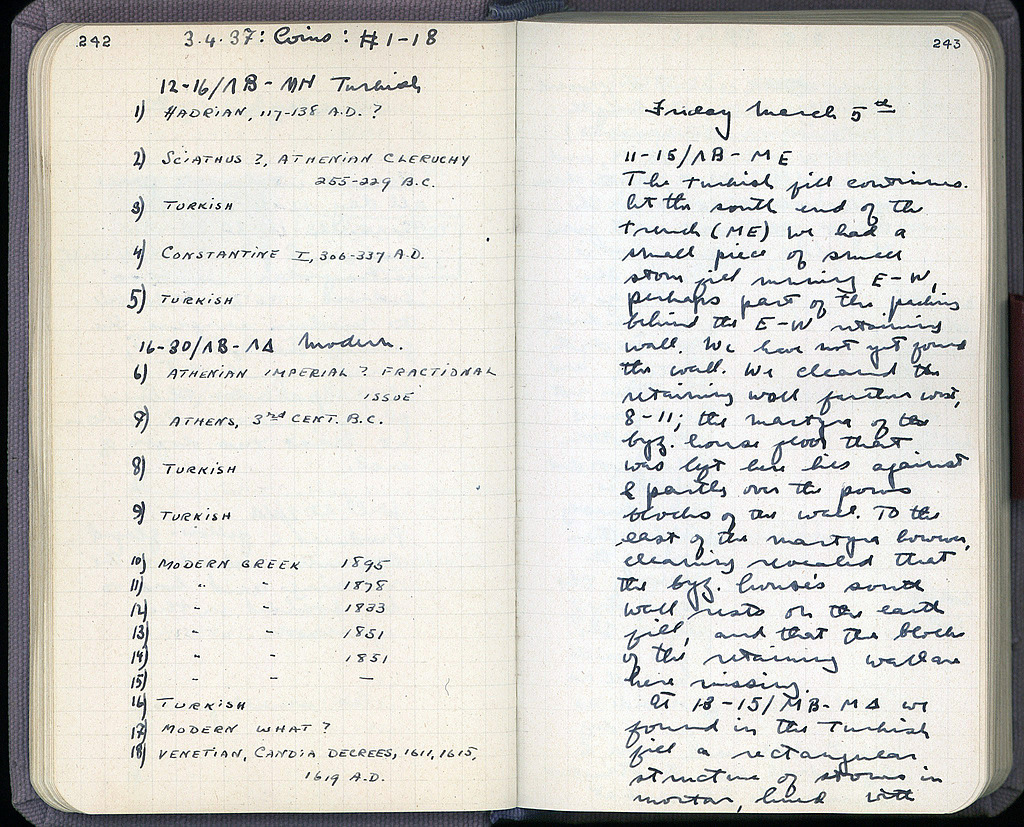 242
3.4.37: Coins: #1-18
12-16/ΛB-MH Turkish
1) HADRIAN, 117-138 A.D. ?
2) SCIATHUS ?, ATHENIAN CLERUCHY
255-229 B.C.
3) TURKISH
4) CONSTANTINE I, 306-337 A.D.
5) TURKISH
16-30/ΛB-ΛΔ Modern.
6) ATHENIAN IMPERIAL ? FRACTIONAL
ISSUE
7) ATHENS, 3rd CENT. B.C.
8) TURKISH
9) TURKISH
10) MODERN GREEK 1895
11) " " 1878
12) " " 1833
13) " " 1851
14) " " 1851
15) " " —
16) TURKISH
17) MODERN WHAT ?
18) VENETIAN, CANDIA DECREES, 1611, 1615,
1619 A.D.
243
Friday March 5th
11-15/ΛB-ME
The Turkish fill continues.
At the south end of the
trench (ME) we had a
small piece of small
stone fill running E-W,
perhaps part of the packing
behind the E-W retaining
wall. We have not yet found
the wall. We cleared the
retaining wall further west,
8-11; the martyra of the
byz. house floor that
was left here lies against
& partly over the poros
blocks of the wall. To the
east of the martyra however,
cleaning revealed that
the byz. house's south
wall rests on the earth
fill, and that the blocks
of the retaining wall are
here missing.
At 13-15/MB-MΔ we
found in the Turkish
fill a rectangular
structure of stones in
mortar, lined with